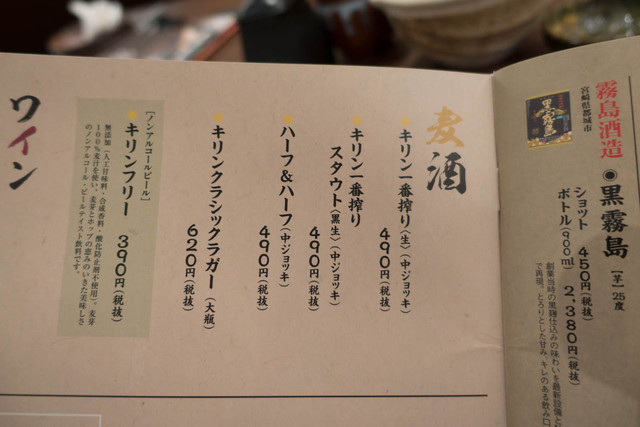 霧島酒造
宮崎県都城市
黒霧島
◉黒霧島［芋］25度
ショット 450円（税抜）
ボトル（900ml） 2,380円（税抜）
創業当時の黒麹仕込みの味わいを最新設備と
で再現。とろりとした甘み、キレのある飲み口
麦酒
キリン一番搾り〈生〉（中ジョッキ）
490円（税抜）
キリン一番搾り
スタウト〈黒生〉（中ジョッキ）
490円（税抜）
ハーフ&ハーフ（中ジョッキ）
490円（税抜）
キリンクラシックラガー（大瓶）
620円（税抜）
［ノンアルコールビール］
キリンフリー 390円（税抜）
無添加（人工甘味料・合成香料・酸化防止剤不使用）。麦芽
100%麦汁を使い、麦芽とホップの恵みのいきた美味しさ
のノンアルコール・ビールテイスト飲料です。
ワイン